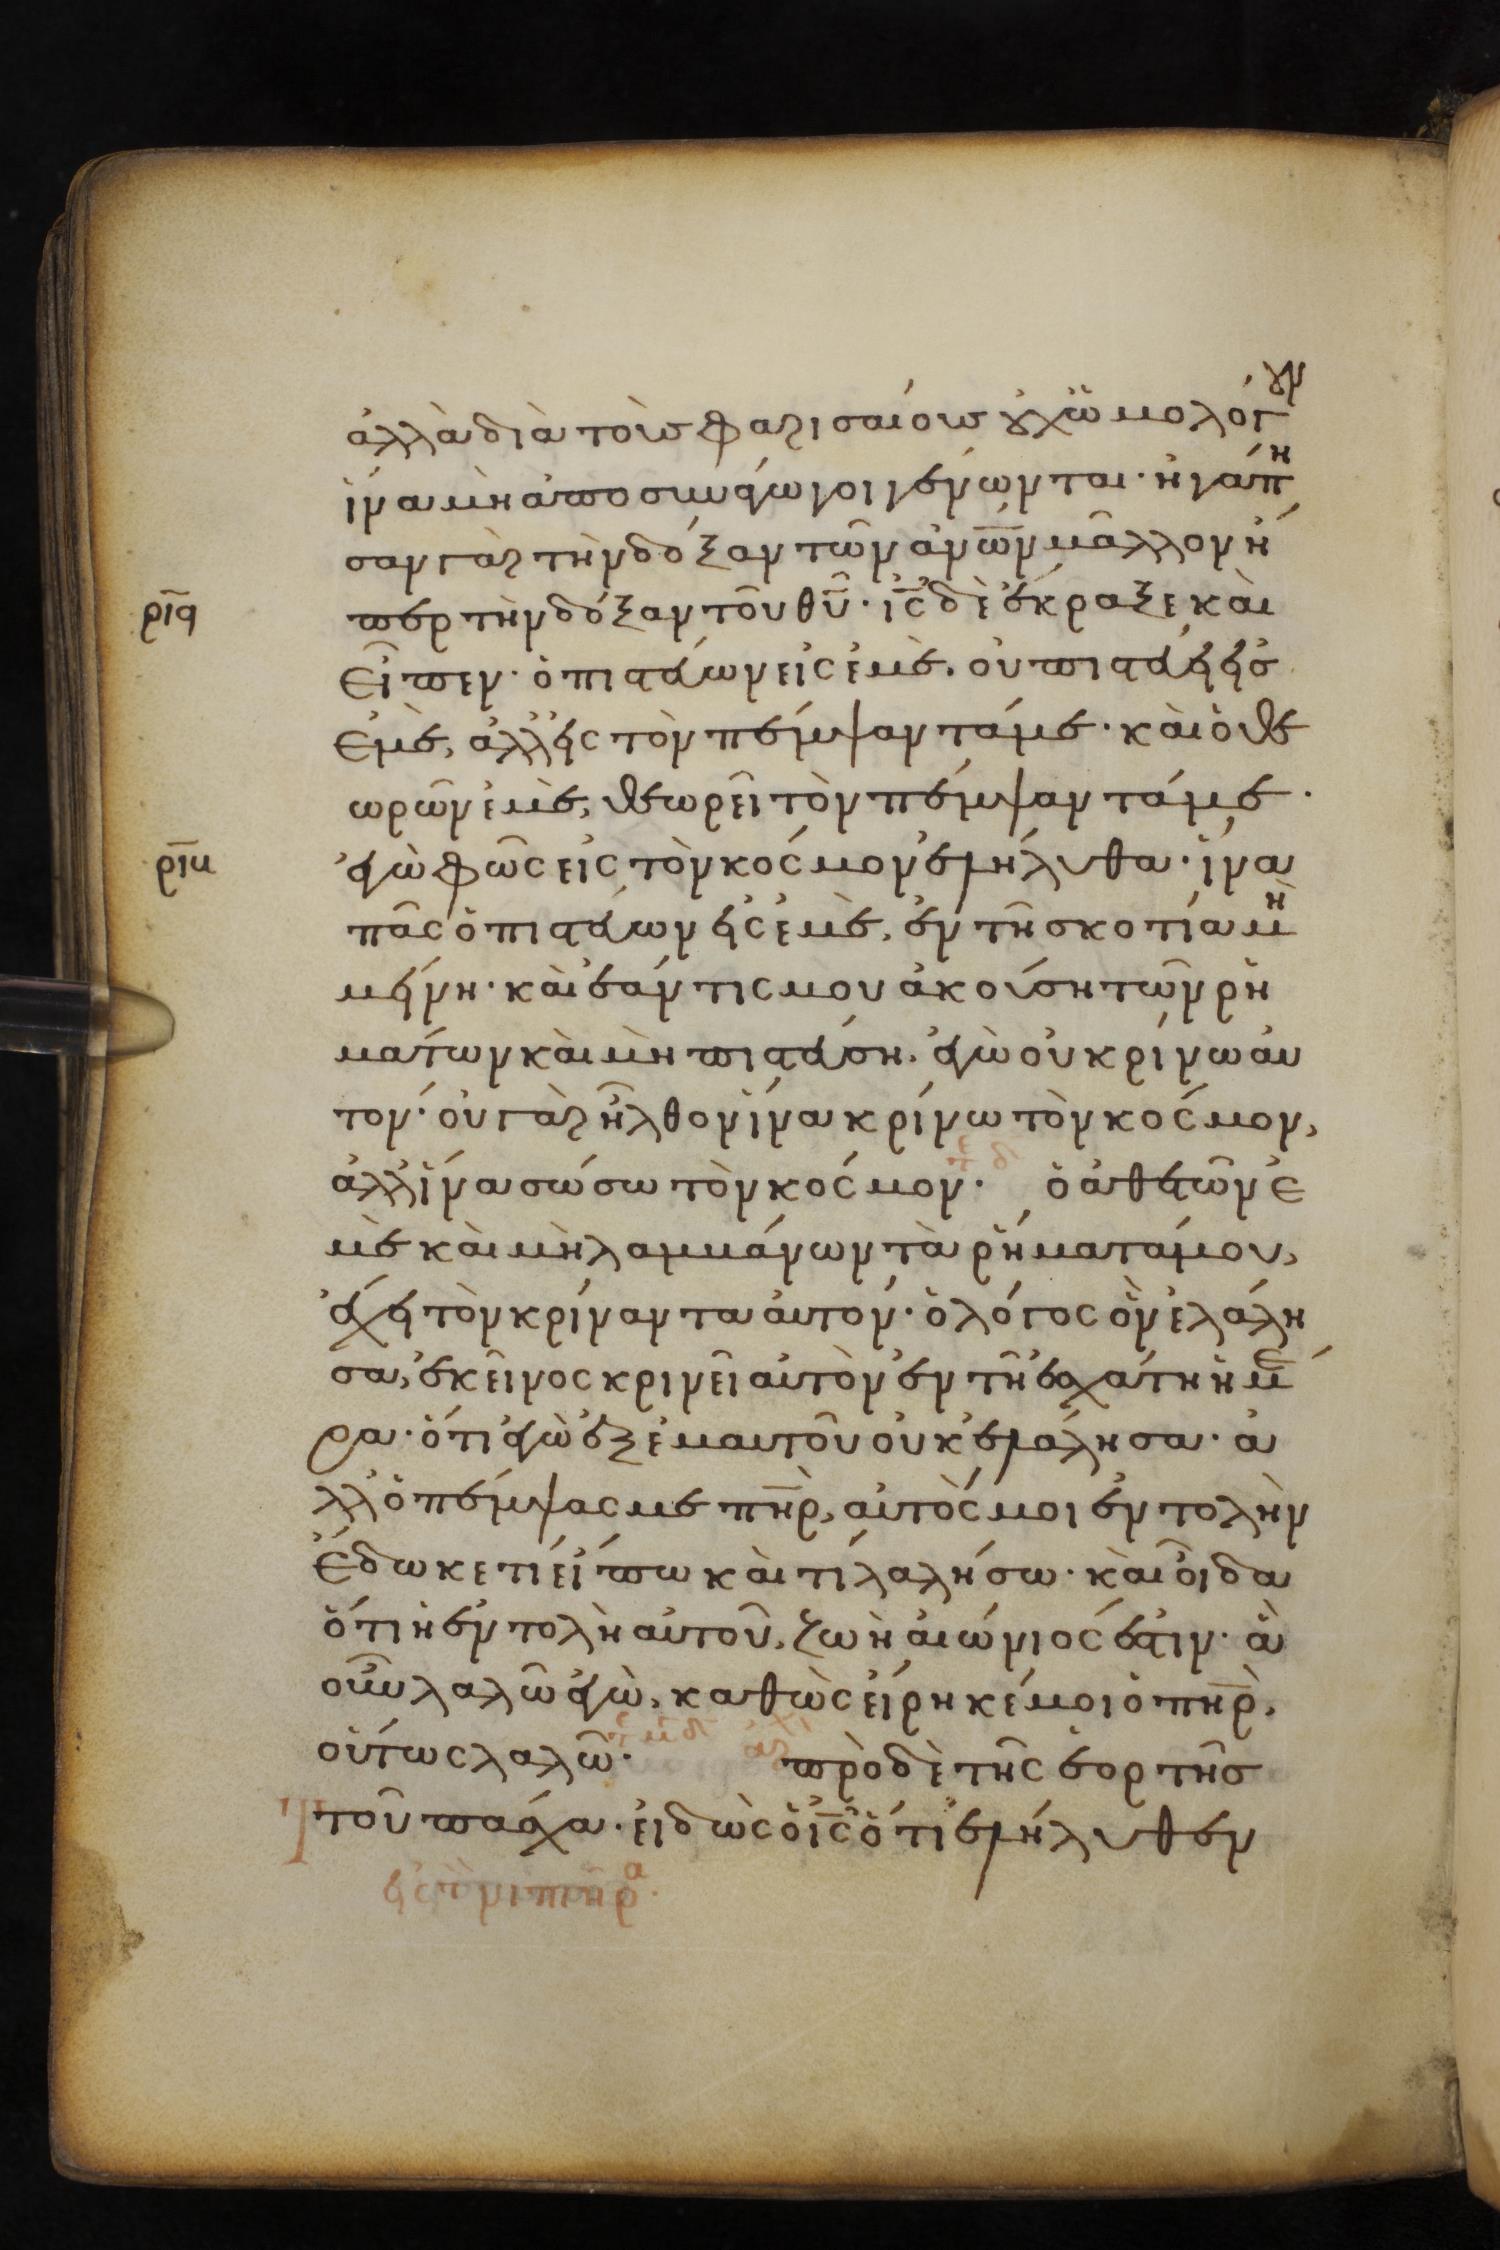 ἀλλὰ διὰ τοὺς φαρισαίους οὐχ ὡμολόγουν
ἵνα μὴ ἀποσυνάγωγοι γένωνται· ἠγάπη
σαν γὰρ τὴν δόξαν τῶν ἀνων μᾶλλον ἤ
ριζ περ τὴν δόξαν τοῦ θυ· ις δὲ ἔκραξε καὶ
εἶπεν· ὁ πιστεύων εἰς ἐμὲ, οὐ πιστεύει εἰς
ἐμὲ, ἀλλ' εἰς τὸν πέμψαντά με· καὶ ὁ θε
ωρῶν ἐμὲ, θεωρεῖ τὸν πέμψαντά με·
ριη ἐγὼ φῶς εἰς τὸν κόσμον ἐλήλυθα· ἵνα
πᾶς ὁ πιστεύων εἰς ἐμὲ, ἐν τῆ σκοτία μὴ
μείνη· καὶ ἐάν τις μου ἀκούση τῶν ρη
μάτων καὶ μὴ πιστεύση, ἐγὼ οὐ κρίνω αὐ
τον· οὐ γὰρ ἦλθον ἵνα κρίνω τὸν κόσμον,
ἀλλ' ἵνα σώσω τὸν κόσμον· ὁ ἀθετῶν ἐ
μὲ καὶ μὴ λαμμάνων τὰ ρήματά μου,
ἔχει τὸν κρίναντα αὐτόν· ὁ λόγος ὃν ἐλάλη
σα, ἐκεῖνος κρινεῖ αὐτὸν ἐν τῆ ἐσχάτη ἡμέ
ρα· ὅτι ἐγὼ ἐξ ἐμαυτοῦ οὐκ ἐλάλησα· ἀ
λλ' ὁ πέμψας με πηρ, αὐτός μοι ἐντολὴν
ἔδωκε τί εἴπω καὶ τί λαλήσω· καὶ οἶδα
ὅτι ἡ ἐντολὴ αὐτοῦ, ζωὴ αἰώνιός ἐστιν· ἃ
οὖν λαλῶ ἐγὼ, καθὼς εἴρηκέ μοι ὁ πηρ,
οὕτως λαλῶ· πρὸ δὲ τῆς ἑορτῆς
τοῦ πάσχα· εἰδὼς ὁ ις ὅτι ἐλήλυθεν